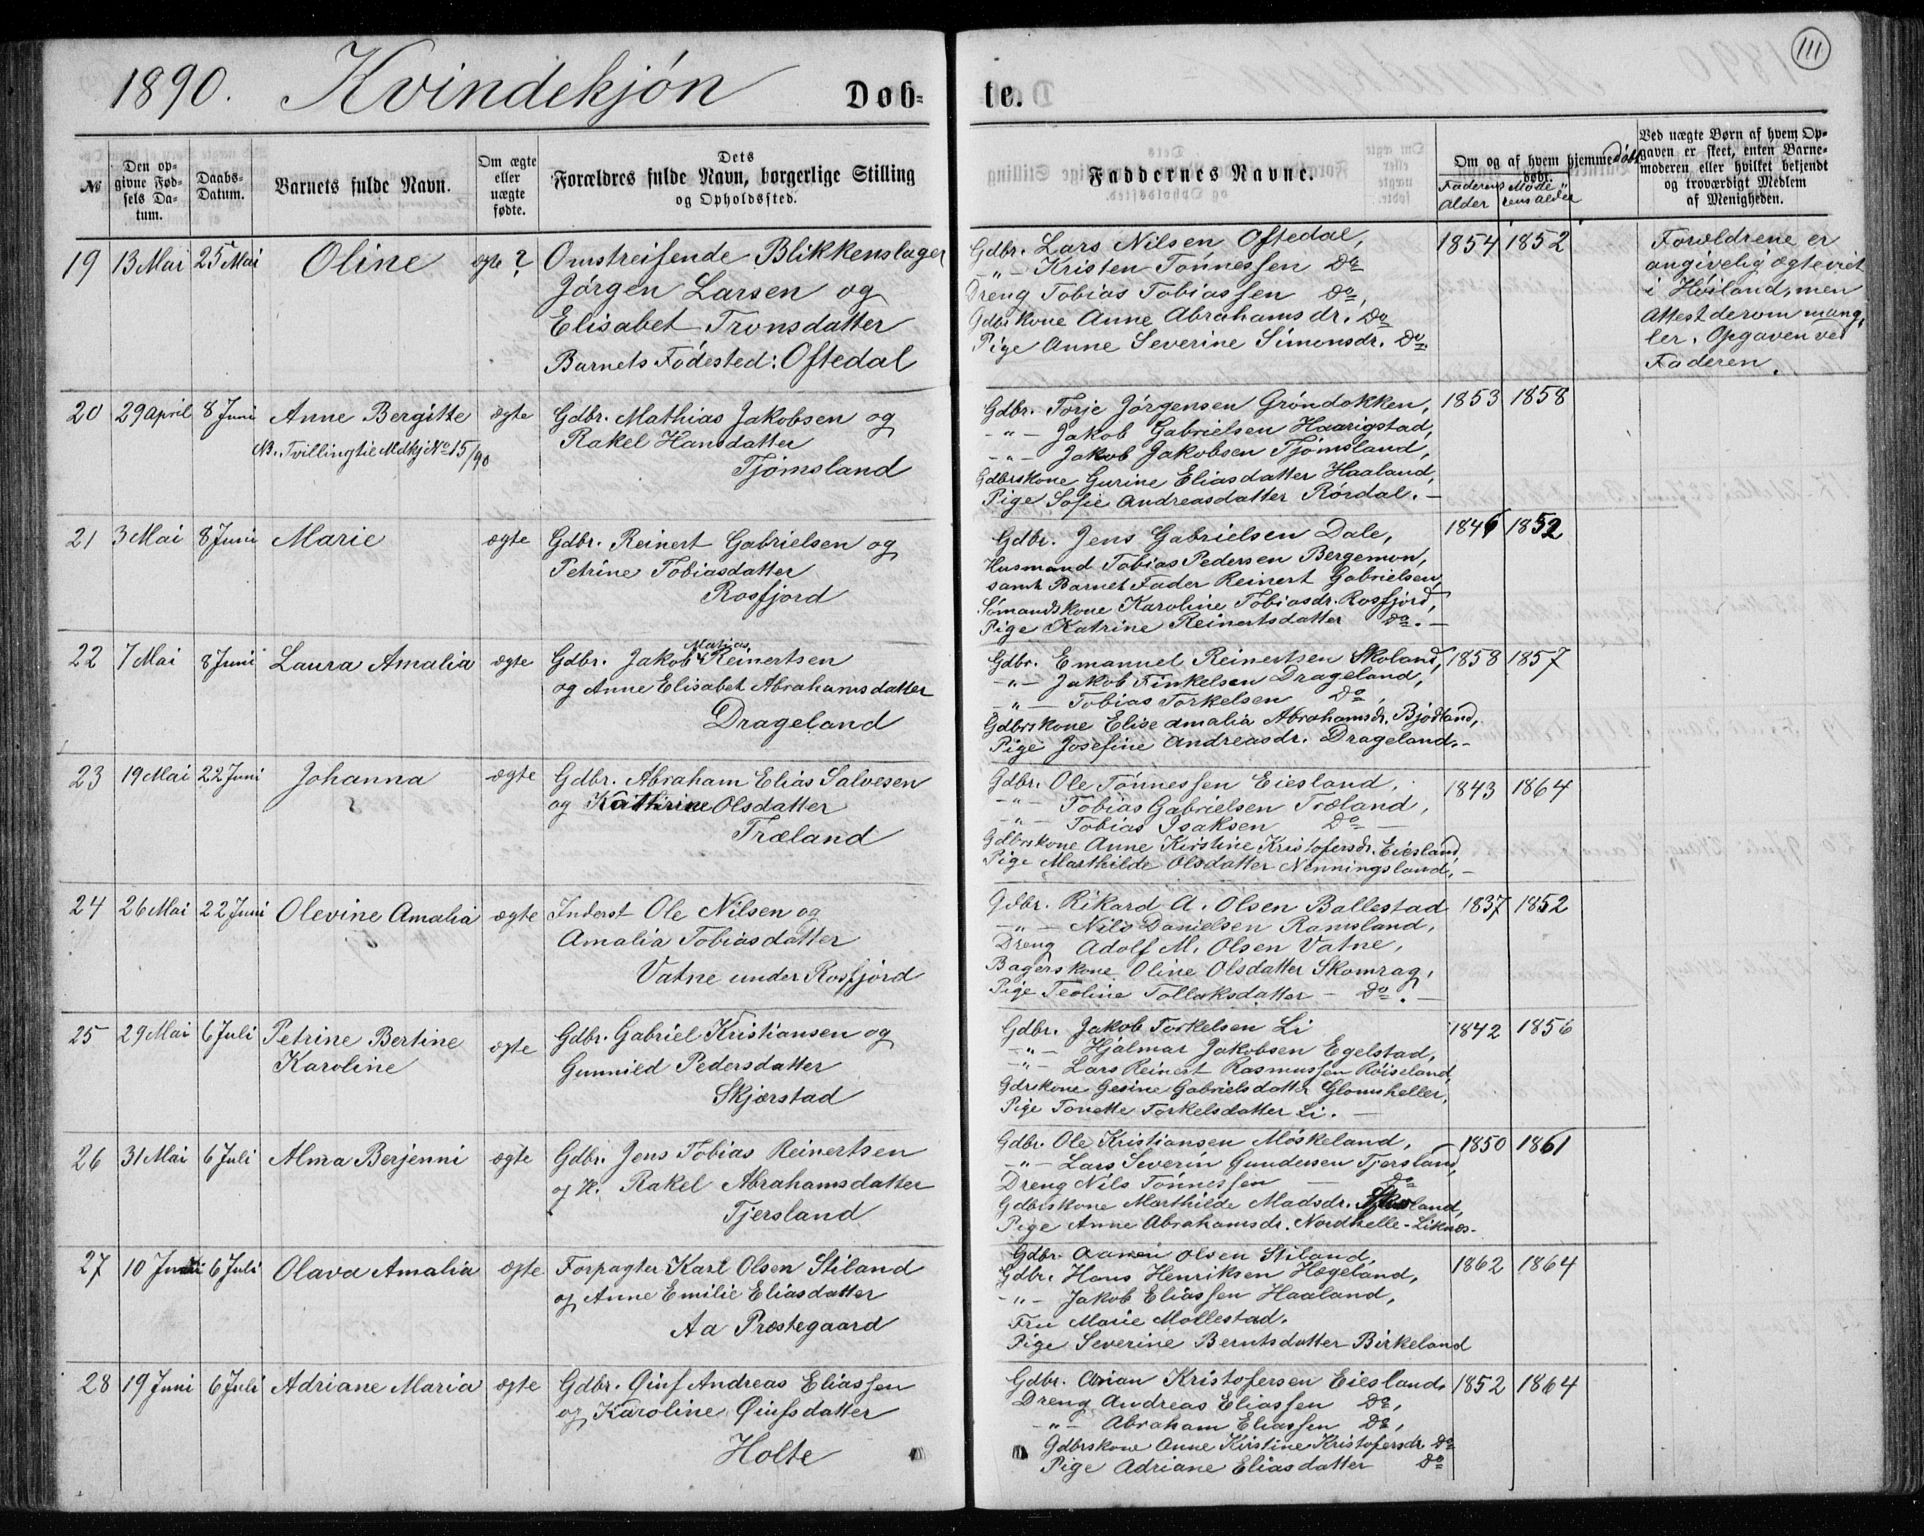 111
1890. Kvindekjön Døb-
te.
№
Den opgivne Fødsels Datum.
Daabs-Datum.
Barnets fulde Navn.
Om ægte eller uægte fødte.
Dets Forældres fulde Navn, borgerlige Stilling og Opholdssted.
Faddernes Navne.
Om og af hvem hjemmedøbt døbt.
Faderens Alder
Moderens alder
Ved uægte Børn af hvem Opgaven er skeet, enten Barnemoderen eller hvilket bekjendt og troværdigt Medlem af Menigheden.
19 13 Mai 25 Mai Oline ægte ? Omstreifende Blikkenslager
Jørgen Larsen og
Elisabet Tronsdatter
Barnets Födested: Oftedal
Gdbr. Lars Nilsen Oftedal,
-"- Kristen Tönnessen Do
Dreng Tobias Tobiassen Do,
Gdbrskone Anne Abrahamsdr. Do
Pige Anne Severine Simonsdr. Do
1854 1852
Forældrene er
angivelig ægteviet
i Hviland, men
Attest derom mang-
ler. Opgaven ved
Faderen.
20 29 April 8 Juni Anne Bergitte ægte Gdbr. Mathias Jakobsen og
NB. Tvilling til Mdkj No 15/90
Rakel Hansdatter
Tjømsland
Gdbr. Torje Jörgensen Gröndokken,
-"- Jakob Gabrielsen Haarigstad,
-"- Jakob Jakobsen Tjömsland,
Gdbrskone Gurine Eliasdatter Haaland,
Pige Sofie Andreasdatter Rördal. -
1853 1858
21 3 Mai 8 Juni Marie ægte Gdbr. Reinert Gabrielsen og
Petrine Tobiasdatter
Rosfjord
Gdbr. Jens Gabrielsen Dale,
Husmand Tobias Pedersen Bergemon,
samt Barnet Fader Reinert Gabrielsen,
Sömandskone Karoline Tobiasdr. Rosfjord,
Pige Katrine Reinertsdatter Do. -
1846 1852
22 7 Mai 8 Juni Laura Amalia ægte Gdbr. Jakob Matias Reinertsen
og Anne Elisabet Abrahamsdatter
Drageland
Gdbr. Emanuel Reinertsen Skoland,
-"- Jakob Finkelsen Drageland,
-"- Tobias Torkelsen Do,
Gdbrskone Elise Amalia Abrahamsdr. Bjödland,
Pige Josefine Andreasdr. Drageland. -
1858 1857
23 19 Mai 22 Juni Johanna ægte Gdbr. Abraham Elias Salvesen
og Kathrine Olsdatter
Træland
Gdbr. Ole Tönnessen Eiesland,
-"- Tobias Gabrielsen Træland,
-"- Tobias Isaksen Do -
Gdbrskone Anne Kirstine Kristofersdr. Eiesland,
Pige Marthilde Olsdatter Nenningsland, -
1843 1864
24 26 Mai 22 Juni Olevine Amalia ægte Inderst Ole Nilsen og
Amalia Tobiasdatter
Vatne under Rosfjord
Gdbr. Rikard A. Olsen Ballestad
-"- Nils Danielsen Ramsland,
Dreng Adolf M. Olsen Vatne,
Bagerskone Oline Olsdatter Skomrag,
Pige Teoline Tollaksdatter - Do. -
1837 1852
25 29 Mai 6 Juli Petrine Bertine ægte Gdbr. Gabriel Kristiansen og
Karoline
Gunnild Pedersdatter
Skjærstad
Gdbr. Jakob Torkelsen Li
-"- Hjalmar Jakobsen Egelstad,
-"- Lars Reinert Rasmussen Röiseland,
Gdrskone Gesine Gabrielsdatter Glomsheller,
Pige Tonette Torkelsdatter Li. -
1842 1856
26 31 Mai 6 Juli Alma Berjenni ægte Gdbr. Jens Tobias Reinertsen
og H. Rakel Abrahamsdatter
Tjersland
Gdbr. Ole Kristiansen Möskeland,
-"- Lars Severin Gundersen Tjersland,
Dreng Nils Tönnessen - Do
Gdbrskone Marthilde Madsdr.
Pige Anne Abrahamsdr. Nordhelle - Liknes.
1850 1861
27 10 Juni 6 Juli Olava Amalia ægte Forpagter Karl Olsen Stiland
og Anne Emilie Eliasdatter
Aa Præstegaard
Gdbr. Aanen Olsen Stiland,
Gdbr. Hans Henriksen Hægeland,
-"- Jakob Eliassen Haaland,
Fru Marie Mollestad,
Pige Severine Berntsdatter Birkeland
1862 1864
28 19 Juni 6 Juli Adriane Maria ægte Gdbr. Öiuf Andreas Eliassen
og Karoline Öiufsdatter
Holte
Gdbr. Arian Kristofersen Eiesland,
Dreng Andreas Eliassen Do,
-"- Abraham Eliassen Do,
Gdbrskone Anne Kirstine Kristofersdr. Do
Pige Adriane Eliasdatter Do
1852 1864